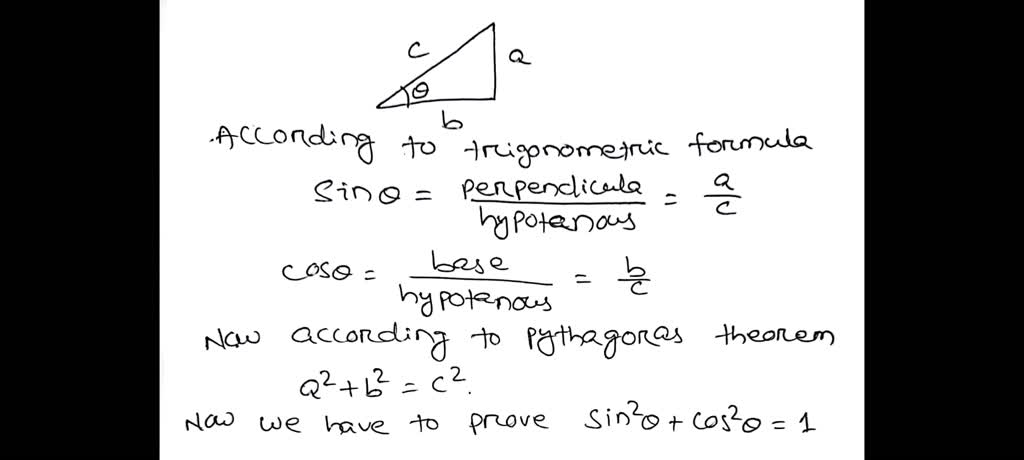 c
a
θ
b
.According to trigonometric formula
sinθ = perpendicula / hypotenous = a / c
cosθ = base / hypotenous = b / c
Now according to pythagoras theorem
a² + b² = c².
Now we have to prove sin²θ + cos²θ = 1